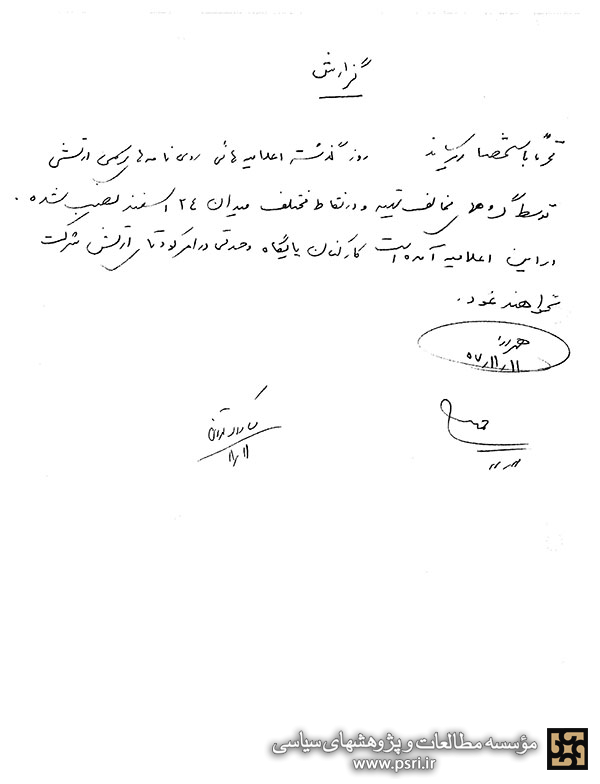 گزارش
محترماً باستحضار میرساند روز گذشته اعلامیه هائی روی نامه های رسمی ارتشی
توسط گروههای مخالف تهیه و در نقاط مختلف میدان ۲۴ اسفند نصب شده .
در این اعلامیه آمده است کارکنان پایگاه وحدتی در امر کودتای ارتش شرکت
نخواهند نمود .
۵۷/۱۱/۱۱
۱۱/۱۱
مؤسسه مطالعات و پژوهشهای سیاسی
www.psri.ir